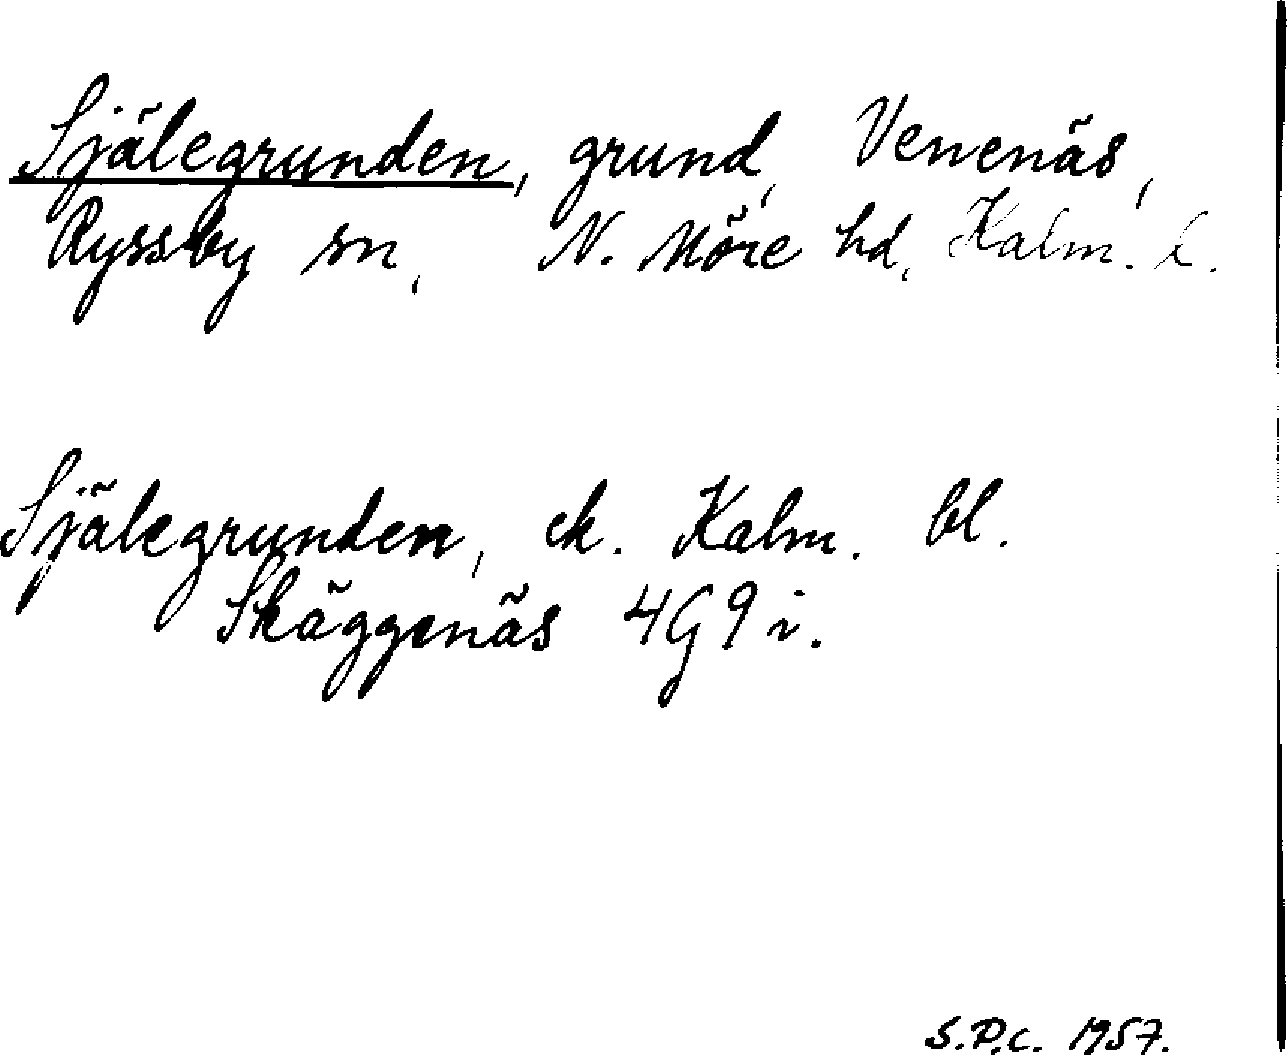 Själegrunden, grund, Venenäs,
Ryssby sn, N. Möre hd, Kalm. l.
Själegrunden, ek. Kalm. bl.
Skäggenäs 4G9i.
S.P.C. 1957.